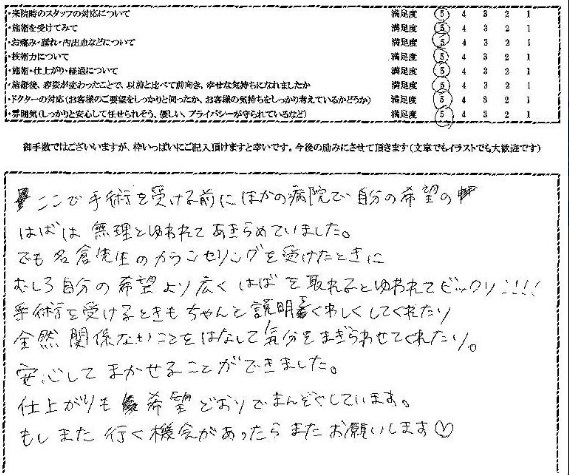 ・来院時のスタッフの対応について 満足度 5 4 3 2 1
・施術を受けてみて 満足度 5 4 3 2 1
・お痛み・腫れ・内出血などについて 満足度 5 4 3 2 1
・技術力について 満足度 5 4 3 2 1
・施術・仕上がり・経過について 満足度 5 4 3 2 1
・施術後、容姿が変わったことで、以前と比べて前向き、幸せな気持ちになれましたか 満足度 5 4 3 2 1
・ドクターの対応(お客様のご要望をしっかりと伺ったか、お客様の気持ちをしっかり考えているかどうか) 満足度 5 4 3 2 1
・雰囲気(しっかりと安心して任せられそう、優しい、プライバシーが守られているなど) 満足度 5 4 3 2 1
御手数ではございますが、枠いっぱいにご記入頂けますと幸いです。今後の励みにさせて頂きます(文章でもイラストでも大歓迎です)
ここで手術を受ける前にほかの病院で自分の希望の
はばは無理とゆわれてあきらめていました。
でも名倉先生のカウンセリングを受けたときに
むしろ自分の希望より広くはばを取れるとゆわれてビックリ!!!!
手術を受けるときもちゃんと説明くわしくしてくれたり
全然関係ないことをはなして気分をまぎらわせてくれたり。
安心してまかせることができました。
仕上がりも希望どおりでまんぞくしています。
もしまた行く機会があったらまたお願いします♡